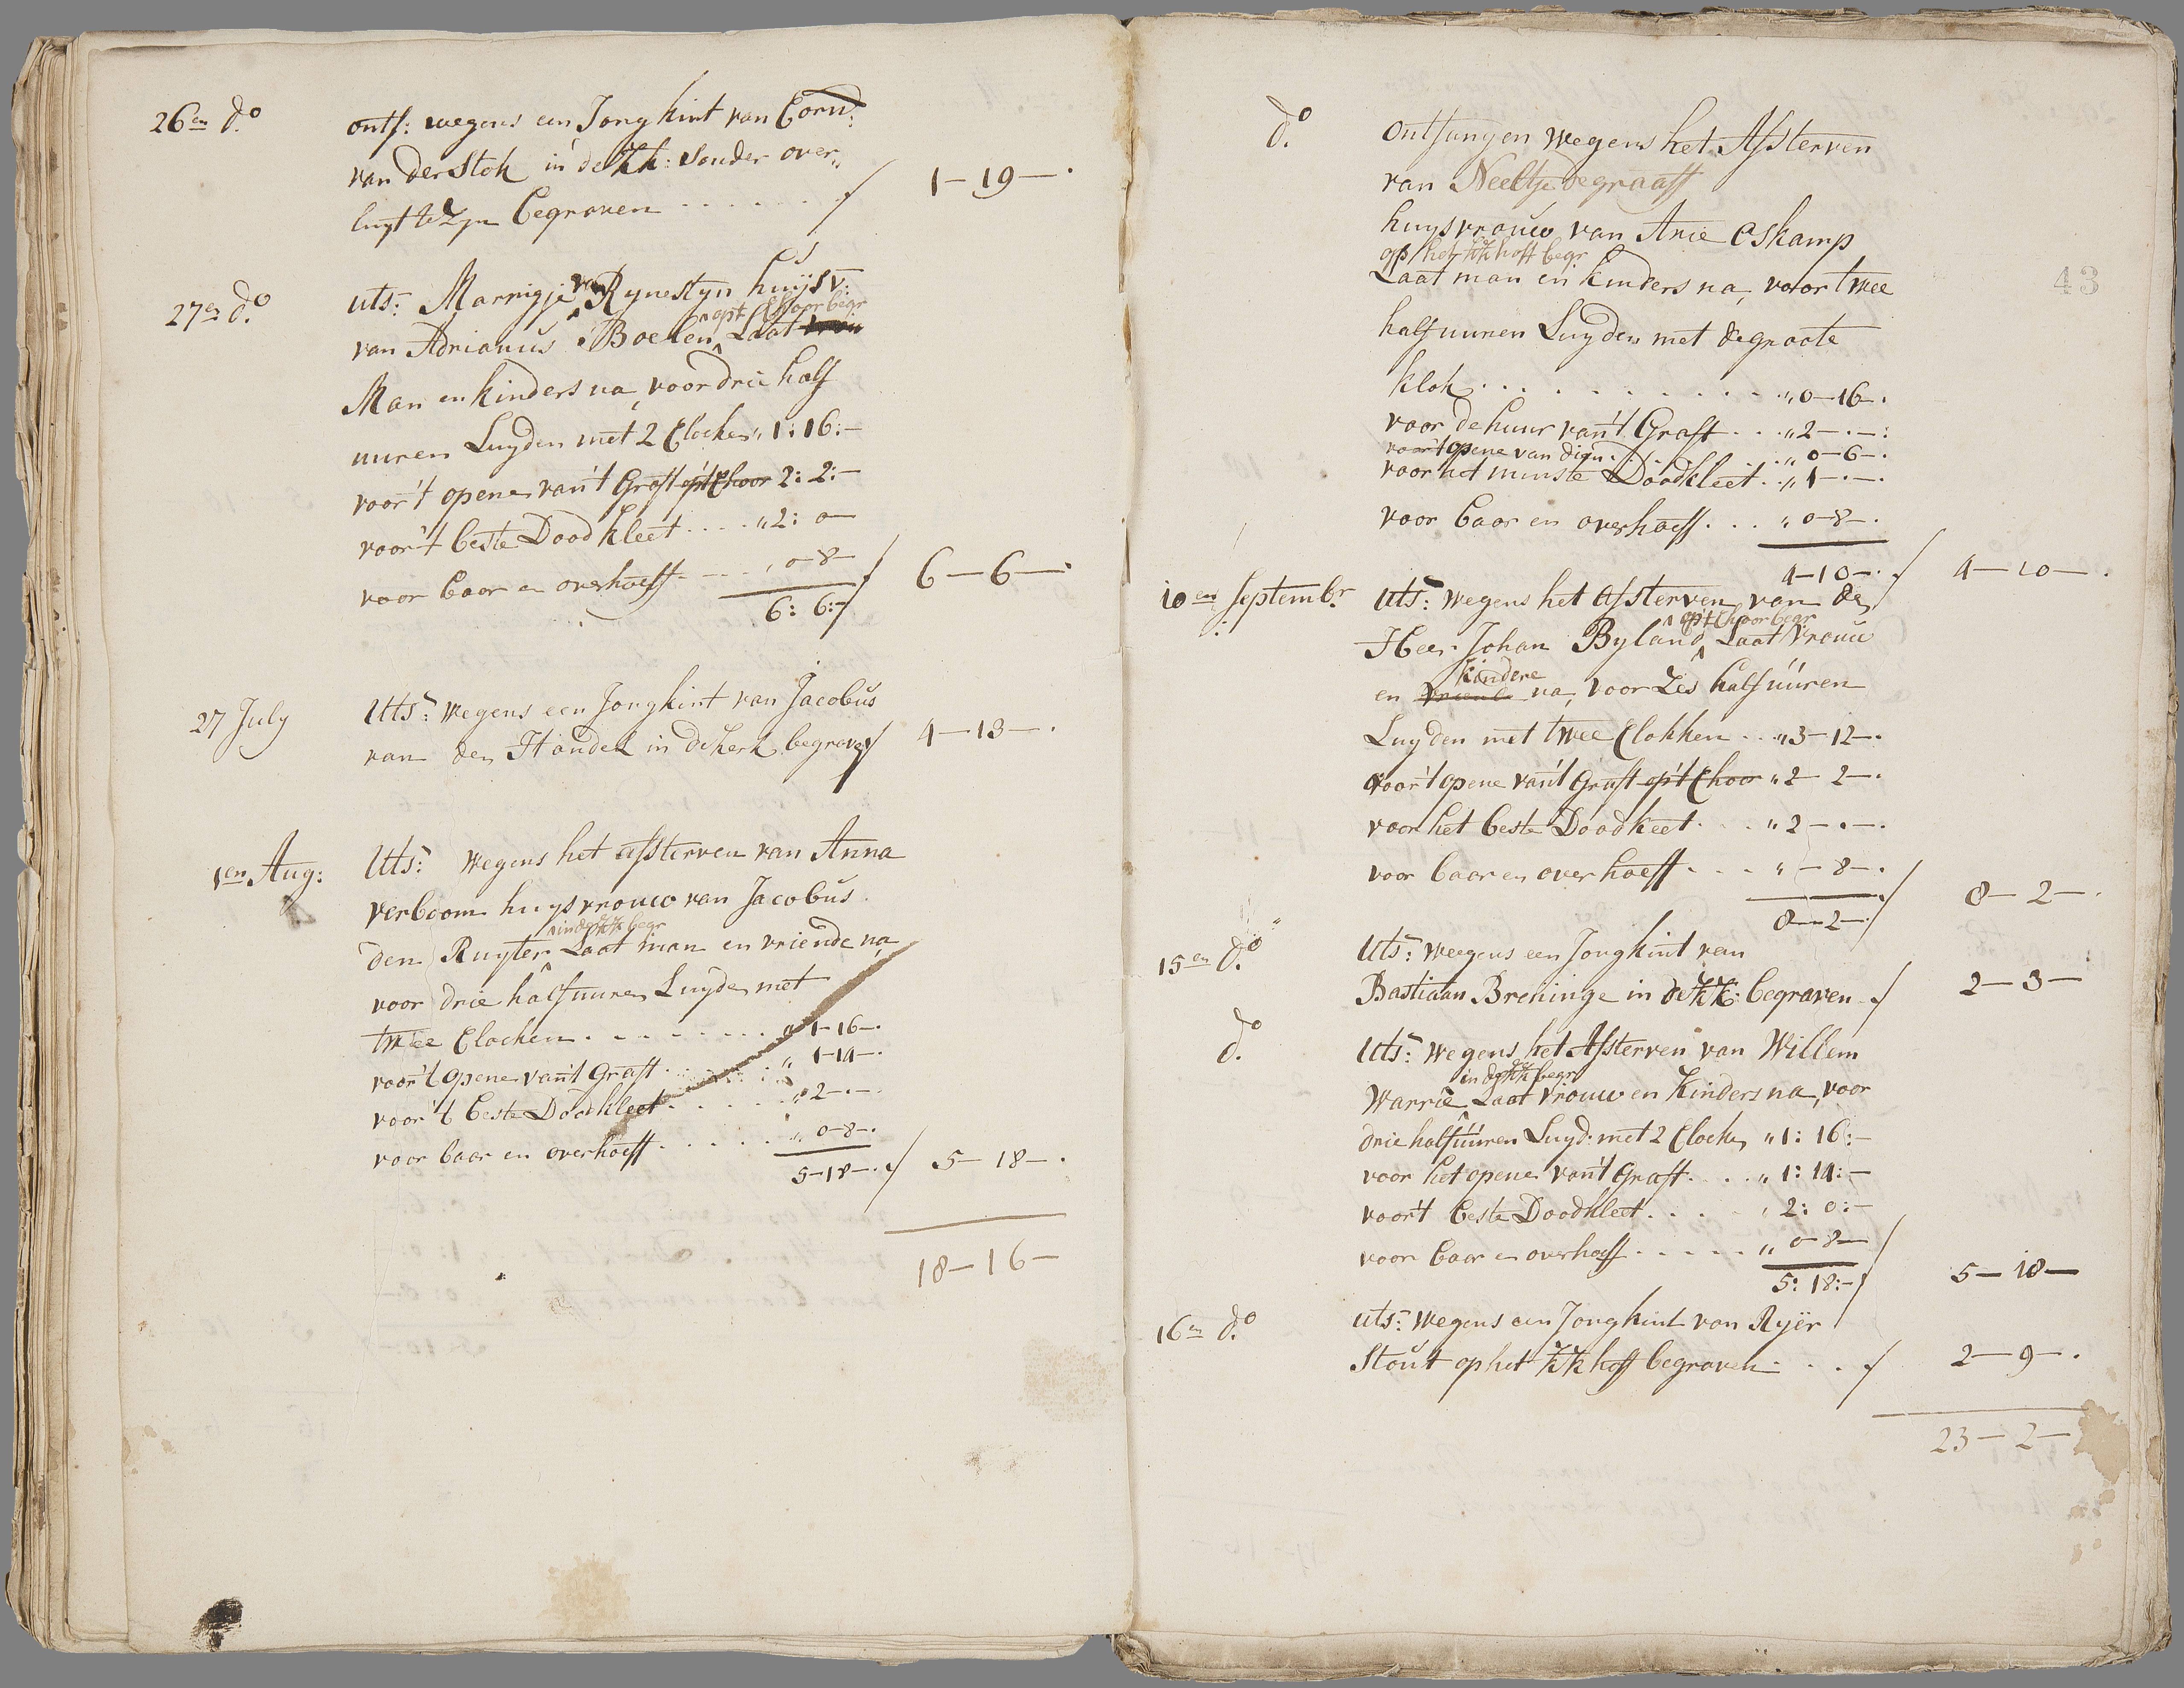 26en do. ontf: wegens een Jong kint van Cornl:
van der Stok in de KK: Sonder over„
luyt te Zyn begraven . . . . . . ƒ 1–19–.
27en do. uts: Marrigje van Rynestyn huijsv:
op't Choor begr
van Adrianus Boelen, Laat vrou
Man en kinders na, voor drie half
uuren Luyden met 2 Clocken „ 1: 16:–
voor 't openen van't Graft op't Choor 2: 2:–
voor 't beste Dood kleet . . . . „ 2: 0–
voor baar en overhoeff . – – – „ 0–8– ƒ 6–6–.
6: 6:–
27 July Uts: wegens een Jong kint van Jacobus
van den Handel in de kerk begraven ƒ 4–13–.
1en Aug: Uts: wegens het afsterven van Anna
verboom huysvrouw van Jacobus
in de KK begr
den Ruyter Laat man en vriende na
voor drie half uuren Luyden met
twee Clocken . . . . . . . . . 1–16–.
voor 't openen van't Graft . . . . . „ 1–14–.
voor 't beste Doodkleet . . . . . „ 2–.–
voor baar en overhoeff . . . . . „ 0–8–.
5–18–. ƒ 5–18–.
18–16–
43
do. ontfangen wegens het Afsterven
van Neeltje de graaff
huysvrouw van Arie Eskamp
op het KK hoff begr
Laat man en kinders na, voor twee
half uuren Luyden met de groote
klok . . . . . . . . . . „ 0–16–.
voor de huur van't Graft . . . „ 2–.–:
voor 't opene van dien . . . „ 0–6–.
voor het minste Doodkleet . . „ 1–.–.
voor baar en overhoeff . . . „ 0–8–.
4–10–. ƒ 4–10–.
10en Septembr. Uts: wegens het afsterven van de
op't Choor begr
Heer Johan Byland, Laat Vrouw
kindere
en vriende na, voor Zes half uuren
Luyden met twee Clokken . . „ 3–12–.
voor 't opene van't Graft op't Choor „ 2–2–.
voor het beste Dood kleet . . . „ 2–.–.
voor baar en overhoeff . . . „ –8–.
8–2–. ƒ 8–2–.
15en do. Uts: weegens een Jong kint van
Bastiaan Breninge in de KK: begraven . ƒ 2–3–
do. Uts: wegens het Afsterven van Willem
in de KK begr
Warrie, Laat Vrouw en Kinders na, voor
drie half uuren Luyd: met 2 Clocke „ 1: 16:–
voor het opene van't Graft . . . „ 1: 14:–
voor't beste Doodkleet . . . . „ 2: 0:–
voor baar en overhoeff . . . . . „ 0–8–
5: 18:– ƒ 5–18–
16en do. uts: wegens een Jong kint van Ryër
Stout op het KK hoff begraven . . . ƒ 2–9–.
23–2–